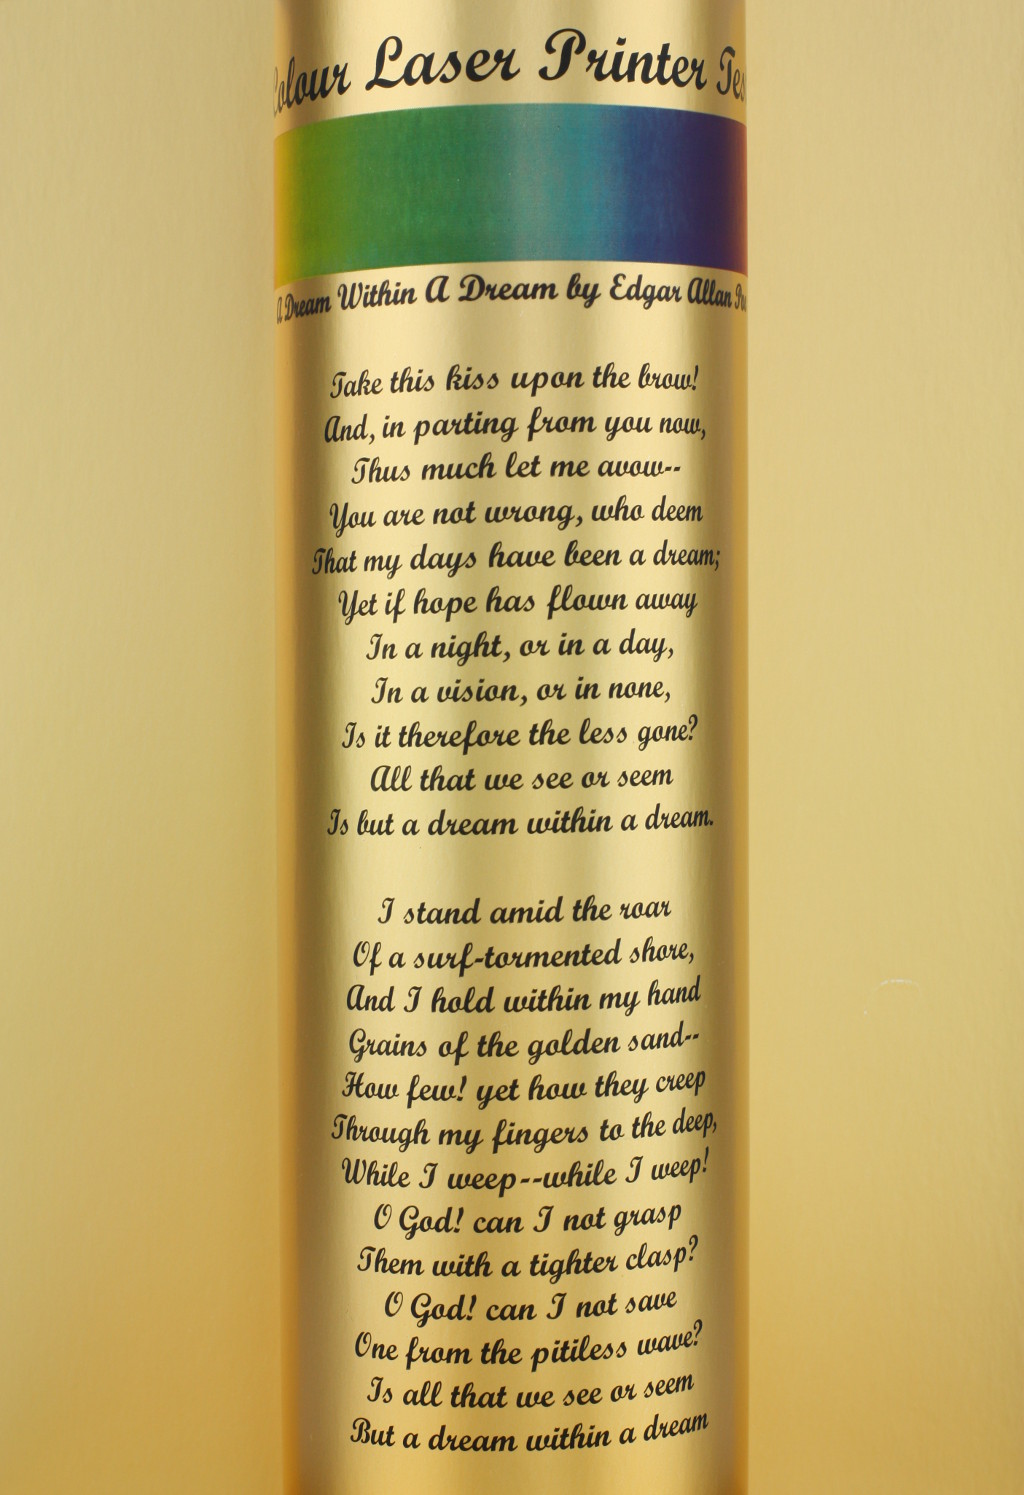 Colour Laser Printer Tes
A Dream Within A Dream by Edgar Allan Poe
Take this kiss upon the brow!
And, in parting from you now,
Thus much let me avow--
You are not wrong, who deem
That my days have been a dream;
Yet if hope has flown away
In a night, or in a day,
In a vision, or in none,
Is it therefore the less gone?
All that we see or seem
Is but a dream within a dream.
I stand amid the roar
Of a surf-tormented shore,
And I hold within my hand
Grains of the golden sand--
How few! yet how they creep
Through my fingers to the deep,
While I weep--while I weep!
O God! can I not grasp
Them with a tighter clasp?
O God! can I not save
One from the pitiless wave?
Is all that we see or seem
But a dream within a dream